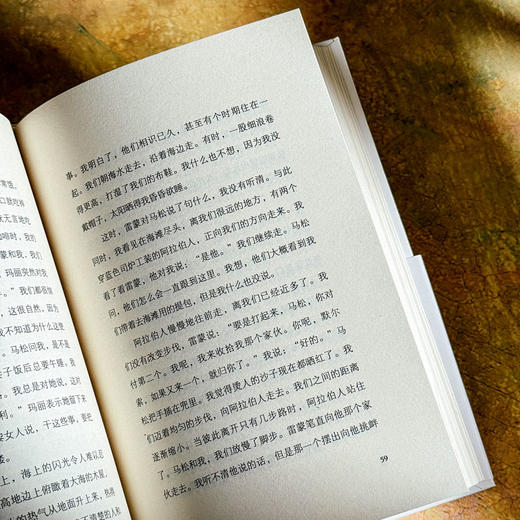 常饿。
口就吃掉
状无言地
咖啡时，我
蒙和我，我
玛丽突然对我
。”我们都很
，这很自然，因为
不知道为什么这里
。马松回我，是不
子饭后总要午睡。我
我总是对她说，这
利。”玛丽表示
女人说，干这些事，要
上，海上的闪光令人难以忍
高地边上俯瞰着大海的木屋，
的热气从地面升上来，热得
不清楚的人和
事。我明白了，他们相识已久，甚至有个时期住在一
起。我们朝海水走去，沿着海边走。有时，一股细浪卷
得更高，打湿了我们的布鞋。我什么也不想，因为我没
戴帽子，太阳晒得我昏昏欲睡。
这时，雷蒙对马松说了句什么，我没有听清。与此
同时，我看见在海滩尽头，离我们很远的地方，有两个
穿蓝色司炉工装的阿拉伯人，正向我们的方向走来。我
看了看雷蒙，他对我说：“是他。”我们继续走。马松
问，他们怎么会一直跟到这里。我想，他们大概看到我
们带着去海滩用的提包，但是我什么也没说。
阿拉伯人慢慢地往前走，离我们已经近多了。我
们没有改变步伐，雷蒙说：“要是打起来，马松，你对
付第二个。我呢，我来收拾我那个家伙。你呢，默尔
索，如果又来一个，就归你了。”我说：“好的。”马
松把手插在兜里。我觉得烫人的沙子现在都晒红了。我
们迈着均匀的步伐，向阿拉伯人走去。我们之间的距离
逐渐缩小。当彼此离开只有几步路时，阿拉伯人站住
了。马松和我，我们放慢了脚步。雷蒙笔直向他那个家
伙走去。我听不清他说的话，但是那一个摆出向他挑衅
59